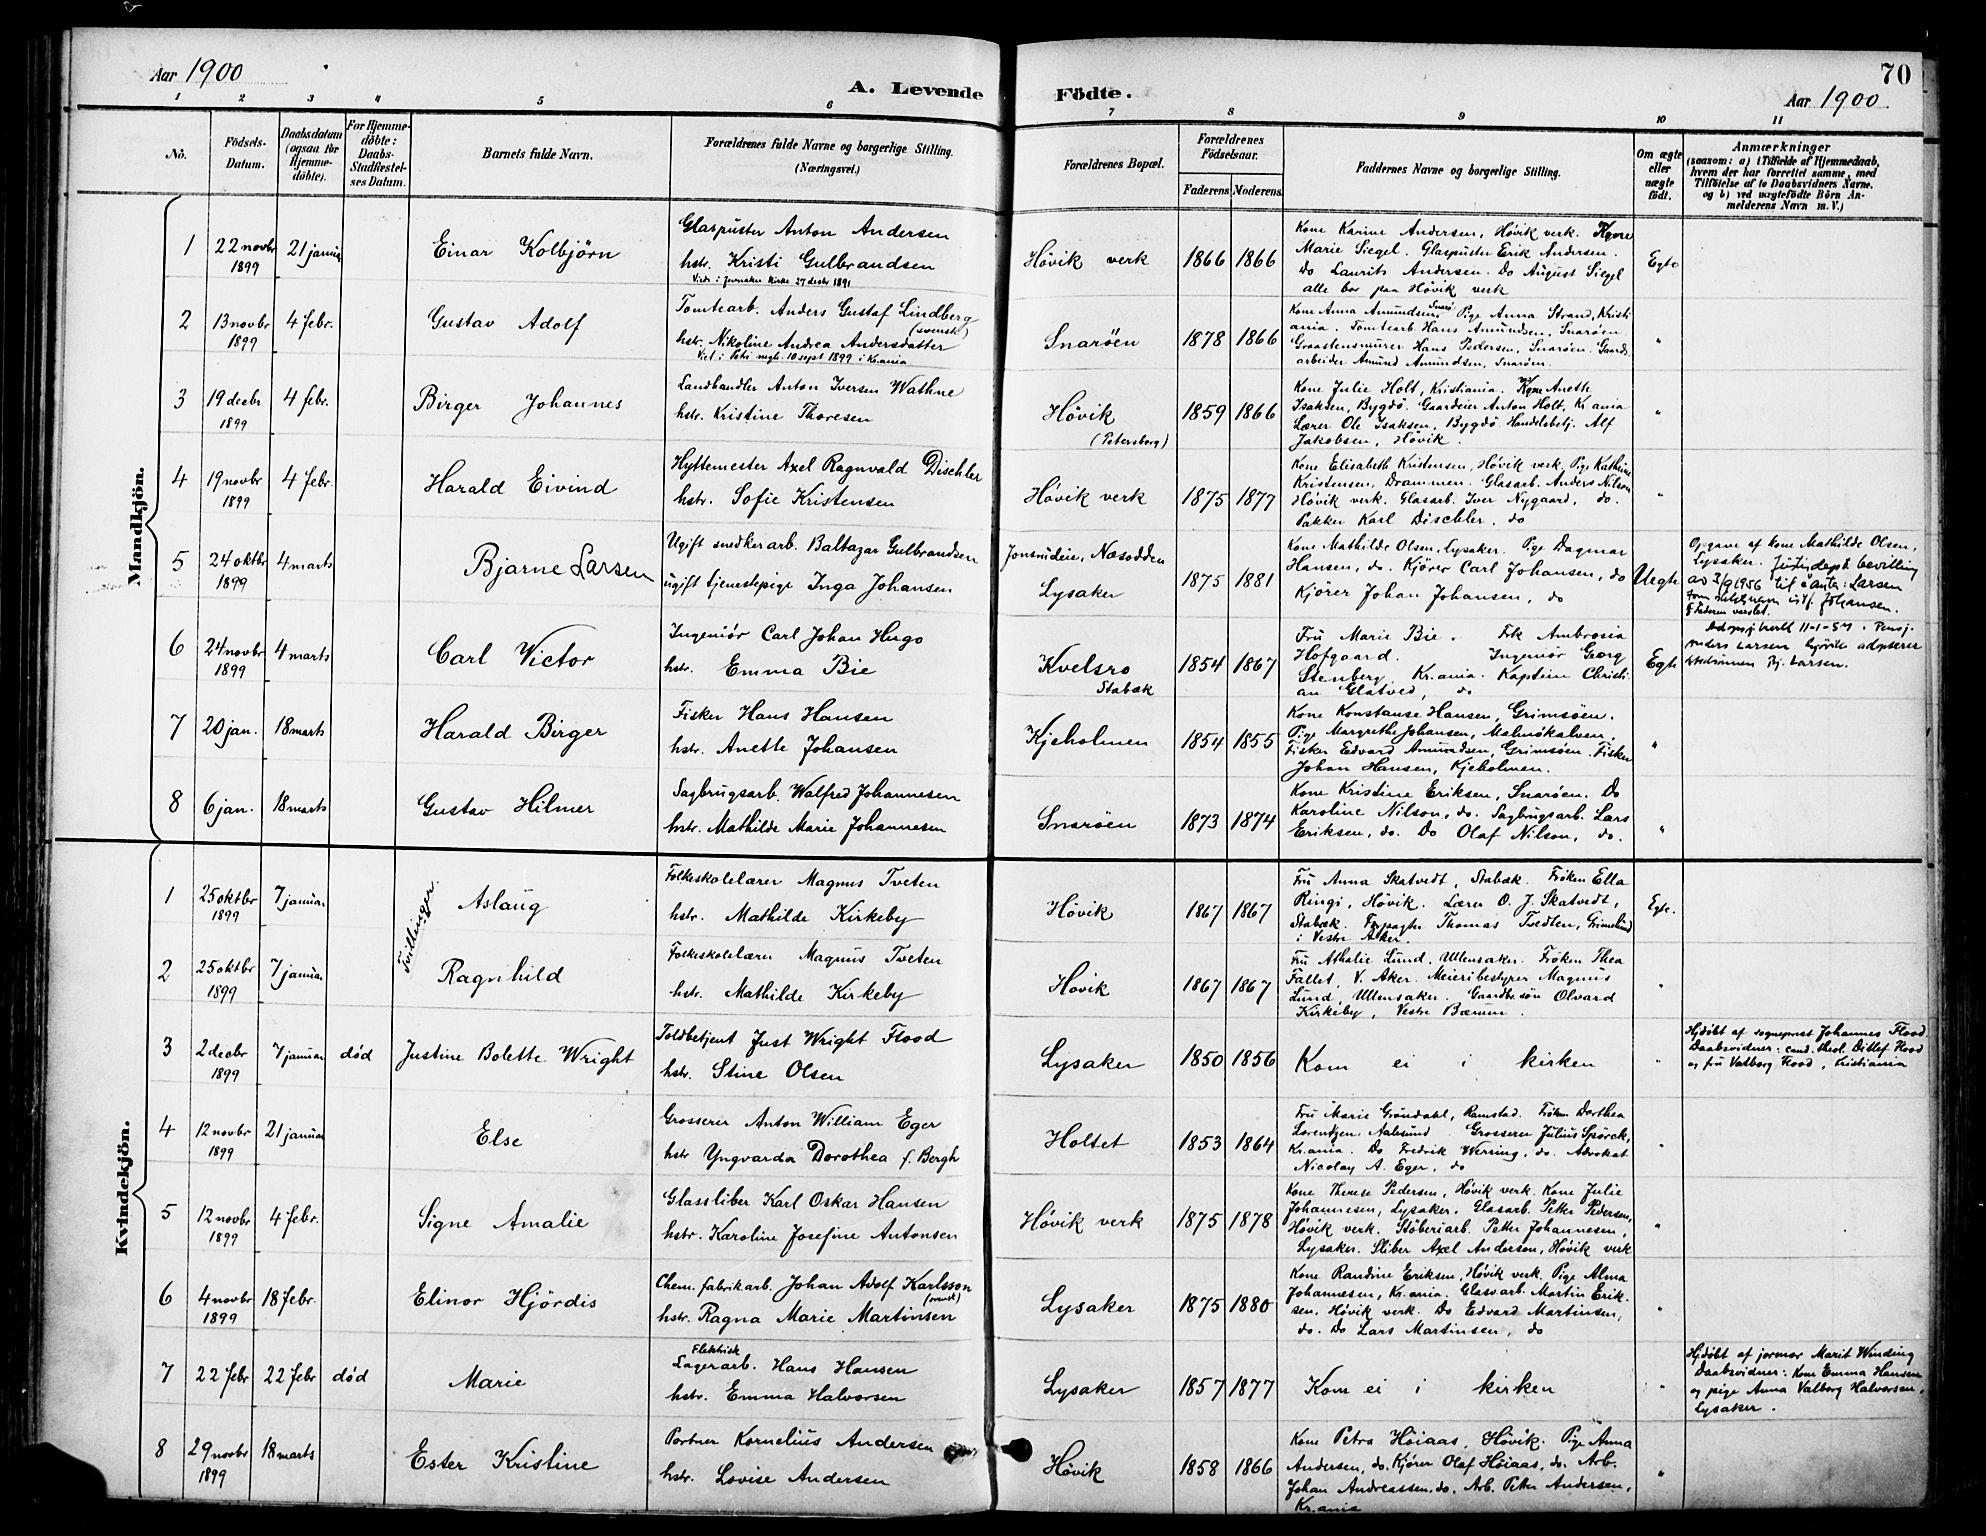 Aar 1900
A. Levende Födte.
70
Aar 1900.
1 2 3 4 5 6 7 8 9 10 11
No.
Födsels-
Datum.
Daabsdatum
(ogsaa for
Hjemme-
döbte).
For Hjemme-
döbte:
Daabs-
Stadfæstel-
ses Datum.
Barnets fulde Navn.
Forældrenes fulde Navne og borgerlige Stilling.
(Næringsvei.)
Forældrenes Bopæl.
Forældrenes
Födselsaar.
Faderens. Moderens.
Faddernes Navne og borgerlige Stilling.
Om ægte
eller
uægte
födt.
Anmærkninger
(saasom: a) i Tilfælde af Hjemmedaab,
hvem der har forrettet samme, med
Tilföielse af to Daabsvidners Navne,
og b) ved uægtefödte Börn An-
melderens Navn m. V.)
Mandkjön.
1
22 novbr
1899
21 januar
Einar Kolbjörn
Glaspuster Anton Andersen
hstr. Kristi Gulbrandsen
Viede i Jevnaker Kirke 27 decbr 1891
Hövik verk
1866 1866
Kone Karine Andersen, Hövik verk. Kone
Marie Siegel. Glaspuster Erik Andersen.
Do Laurits Andersen. Do August Siegel
alle bor paa Hövik verk
Egte
2
13 novbr
1899
4 febr.
Gustav Adolf
Tomtearb. Anders Gustaf Lindberg
(svensk)
hstr. Nikoline Andrea Andersdatter
Viet i Petri mgh. 10 sept 1899 i Krania
Snaröen
1878 1866
Kone Anna Amundsen, Snarö. Pige Anna Strand, Kristi
ania. Tomtearb. Hans Amundsen, Snaröen
Graastensmurer Hans Pedersen, Snaröen. Gaards
arbeider Amund Amundsen, Snaröen.
"
3
19 decbr
1899
4 febr.
Birger Johannes
Landhandler Anton Iversen Wathne
hstr. Kristine Thoresen
Hövik
(Petersborg)
1859 1866
Kone Julie Holt, Kristiania. Kone Anette
Isaksen, Bygdö. Gaardeier Anton Holt, Kr.ania
Lærer Ole Isaksen, Bygdö. Handelsbetj. Alf
Jakobsen, Hövik.
"
4
19 novbr
1899
4 febr.
Harald Eivind
Hyttemester Axel Ragnvald Dischler
hstr. Sofie Kristensen
Hövik verk
1875 1877
Kone Elisabeth Kristensen, Hövik verk. Pige Kathrine
Kristensen, Drammen. Glasarb. Anders Nilson
Hövik verk. Glasarb. Iver Nygaard, do.
Pakker Karl Dischler, do
"
5
24 oktbr
1899
4 marts
Bjarne Larsen
Ugift snedkerarb. Baltazar Gulbrandsen
ugift tjenestepige Inga Johansen
Jonsrudeie, Næsodden
Lysaker
1875 1881
Kone Mathilde Olsen, Lysaker. Pige Dagmar
Hansen, do. Kjörer Carl Johansen, do
Kjörer Johan Johansen, do
Uegte
Opgave af kone Mathilde Olsen,
Lysaker. Just.dept. bevilling
av 3/9 1956 til å anta: Larsen
som slektsnavn istf. Johansen.
6
24 novbr
1899
4 marts
Carl Victor
Ingeniör Carl Johan Hugo
hstr. Emma Bie
Kvelsro
Stabæk
1854 1867
Fru Marie Bie. Frk Ambrosia
Hofgaard. Ingeniör Georg
Stenberg, Kr.ania. Kaptein Christi
an Glatved, do
Egte
Adopsj.bevill 11-1-57. Pensj.
Anders Larsen Gjövik adopterer
stedsönnen Bj. Larsen.
7
20 jan.
18 marts
Harald Birger
Fisker Hans Hansen
hstr. Anette Johansen
Kjeholmen
1854 1855
Kone Konstanse Hansen, Grimsöen.
Pige Margrethe Johansen, Malmökalven.
Fisker Edvard Amundsen, Grimsöen. Fisker
Johan Hansen, Kjeholmen.
"
8
6 jan.
18 marts
Gustav Hilmer
Sagbrugsarb. Walfred Johannesen
hstr. Mathilde Marie Johannesen
Snaröen
1873 1874
Kone Kristine Eriksen, Snaröen. Do
Karoline Nilson, do. Sagbrugsarb. Lars
Eriksen, do. Do Olaf Nilson, do.
"
Kvindekjön.
Tvillinger.
1
25 oktbr
1899
7 januar
Aslaug
Folkeskolelærer Magnus Tveten
hstr. Mathilde Kirkeby
Hövik
1867 1867
Fru Anna Skatvedt, Stabæk. Fröken Ella
Ringi, Hövik. Lærer O. J. Skatvedt,
Stabæk. Forpagter Thomas Tvedten, Grimelund
i Vestre Aker.
Egte.
2
25 oktbr
1899
7 januar
Ragnhild
Folkeskolelærer Magnus Tveten
hstr. Mathilde Kirkeby
Hövik
1867 1867
Fru Athalie Lund, Ullensaker. Fröken Thea
Fallet, V. Aker. Meieribestyrer Magnus
Lund, Ullensaker. Gaardbr.sön Olvard
Kirkeby, Vestre Bærum.
"
3
2 decbr
1899
7 januar
död
Justine Bolette Wright
Toldbetjent Just Wright Flood
hstr. Stine Olsen
Lysaker
1850 1856
Kom ei i kirken
"
Hjdöbt af sogneprest Johannes Flood
Daabsvidner: cand. theol. Ditlef Flood
og fru Valborg Flood, Kristiania
4
12 novbr
1899
21 januar
Else
Grosserer Anton William Eger
hstr Yngvarda Dorothea f. Bergh
Holtet
1853 1864
Fru Marie Gröndahl, Ramstad. Fröken Dorthea
Lorentzen, Aalesund. Grosserer Julius Spörck,
Kr.ania. Do Fredrik Werring, do. Advokat
Nicolay A. Eger, do
"
5
12 novbr
1899
4 febr.
Signe Amalie
Glassliber Karl Oskar Hansen
hstr. Karoline Josefine Antonsen
Hövik verk
1875 1878
Kone Therese Pedersen, Hövik verk. Kone Julie
Johannesen, Lysaker. Glasarb. Petter Pedersen,
Hövik verk. Stöberiarb. Petter Johannesen,
Lysaker. Sliber Axel Anderson, Hövik verk
"
6
4 novbr
1899
18 febr.
Elinor Hjördis
Chem. fabrikarb. Johan Adolf Karlsson
(svensk)
hstr. Ragna Marie Martinsen
Lysaker
1875 1880
Kone Randine Eriksen, Hövik verk. Pige Alma
Johannesen, Kr.ania. Glasvarb. Martin Erik-
sen, Hövik verk. Do Edvard Martinsen,
do. Do Lars Martinsen, do
"
7
22 febr
22 febr
död
Marie
Elektrisk
Lagerarb. Hans Hansen
hstr. Emma Halvorsen
Lysaker
1857 1877
Kom ei i kirken
"
Hjdöbt af jormor Marit Winding
Daabsvidner: Kone Emma Hansen
og pige Anna Valborg Halvorsen,
Lysaker.
8
29 novbr
1899
18 marts
Ester Kristine
Portner Kornelius Andersen
hstr. Lovise Andersen
Hövik
1858 1866
Kone Petra Höiaas, Hövik. Pige Anna
Andersen, do. Kjörer Olaf Höiaas, do. Arb.
Johan Andreassen, do. Arb. Petter Andersen,
Kr.ania
"